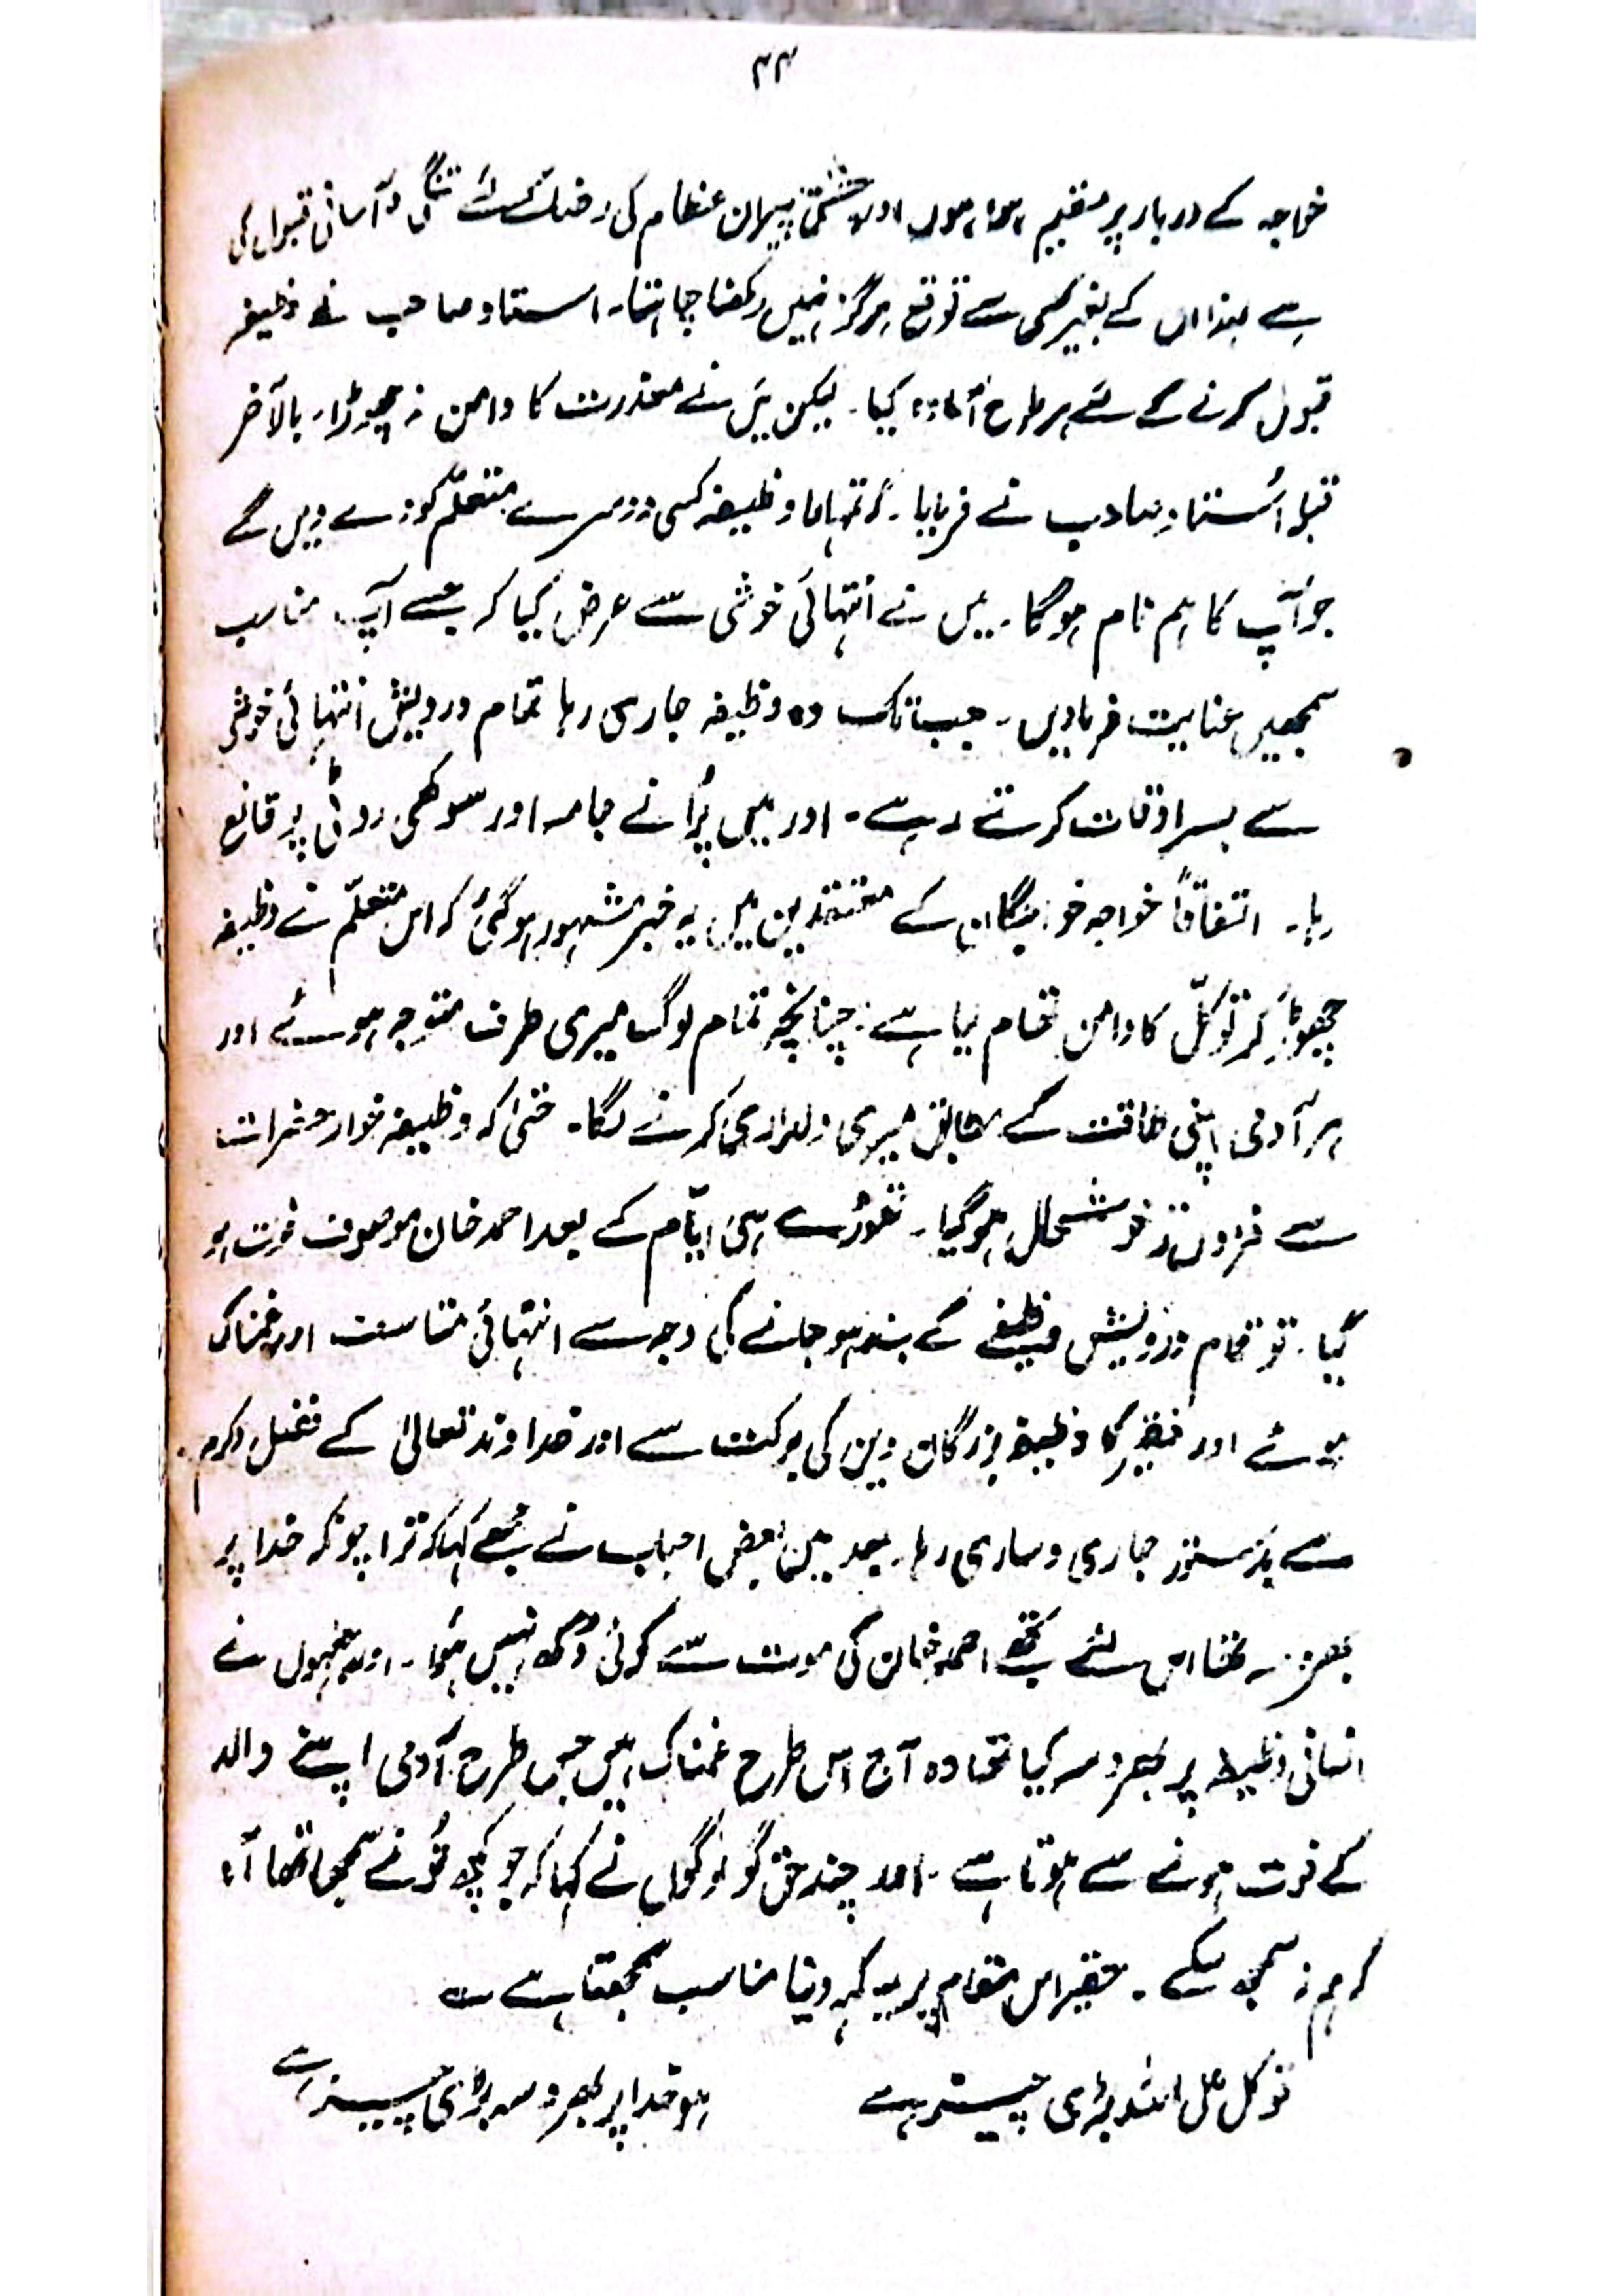 ۴۴
خواجہ کے دربار پر مقیم ہوا ہوں اور چشتی پیران عظام کی رضا کے لئے تنگی و آسانی قبول کی
ہے لہذا ان کے بغیر کسی سے توقع ہرگز نہیں رکھنا چاہتا۔ استاد صاحب نے وظیفہ
قبول کرنے کے لئے ہر طرح آمادہ کیا۔ لیکن میں نے معذرت کا دامن نہ چھوڑا۔ بالآخر
قبلہ اُستاد صاحب نے فرمایا۔ کہ تمہارا وظیفہ کسی دوسرے متعلّم کو دے دیں گے
جو آپ کا ہم نام ہوگا۔ میں نے انتہائی خوشی سے عرض کیا کہ جسے آپ مناسب
سمجھیں عنایت فرمادیں۔ جب تک وہ وظیفہ جاری رہا تمام درویش انتہائی خوشی
سے بسر اوقات کرتے رہے۔ اور میں پُرانے جامہ اور سوکھی روٹی پر قانع
رہا۔ اتفاقاً خواجہ خواجگان کے معتقدین میں یہ خبر مشہور ہو گئی کہ اس متعلّم نے وظیفہ
چھوڑ کر توکّل کا دامن تھام لیا ہے۔ چنانچہ تمام لوگ میری طرف متوجہ ہوئے اور
ہر آدمی اپنی طاقت کے مطابق میری دلداری کرنے لگا۔ حتیٰ کہ وظیفہ خوار حضرات
سے فزوں تر خوشحال ہو گیا۔ تھوڑے ہی ایّام کے بعد احمد خان موصوف فوت ہو
گیا۔ تو تمام درویش وظیفے کے بند ہو جانے کی وجہ سے انتہائی متاسف اور غمناک
ہوئے اور فقیر کا وظیفہ بزرگان دین کی برکت سے اور خداوند تعالیٰ کے فضل و کرم
سے بدستور جاری و ساری رہا۔ بعد میں بعض احباب نے مجھے کہا کہ ترا چونکہ خدا پر
بھروسہ تھا اس لئے تجھے احمد خان کی موت سے کوئی دُکھ نہیں ہُوا۔ اور جنہوں نے
انسانی وظیفہ پر بھروسہ کیا تھا وہ آج اس طرح غمناک ہیں جس طرح آدمی اپنے والد
کے فوت ہونے سے ہوتا ہے۔ اور چند حق گو لوگوں نے کہا کہ جو کچھ تُو نے سمجھا تھا
کہ ہم نہ سمجھ سکے۔ حقیر اس مقام پر یہ کہہ دینا مناسب سمجھتا ہے ؎
توکل علی اللہ بڑی چیز ہے ہو خدا پر بھروسہ بڑی چیز ہے